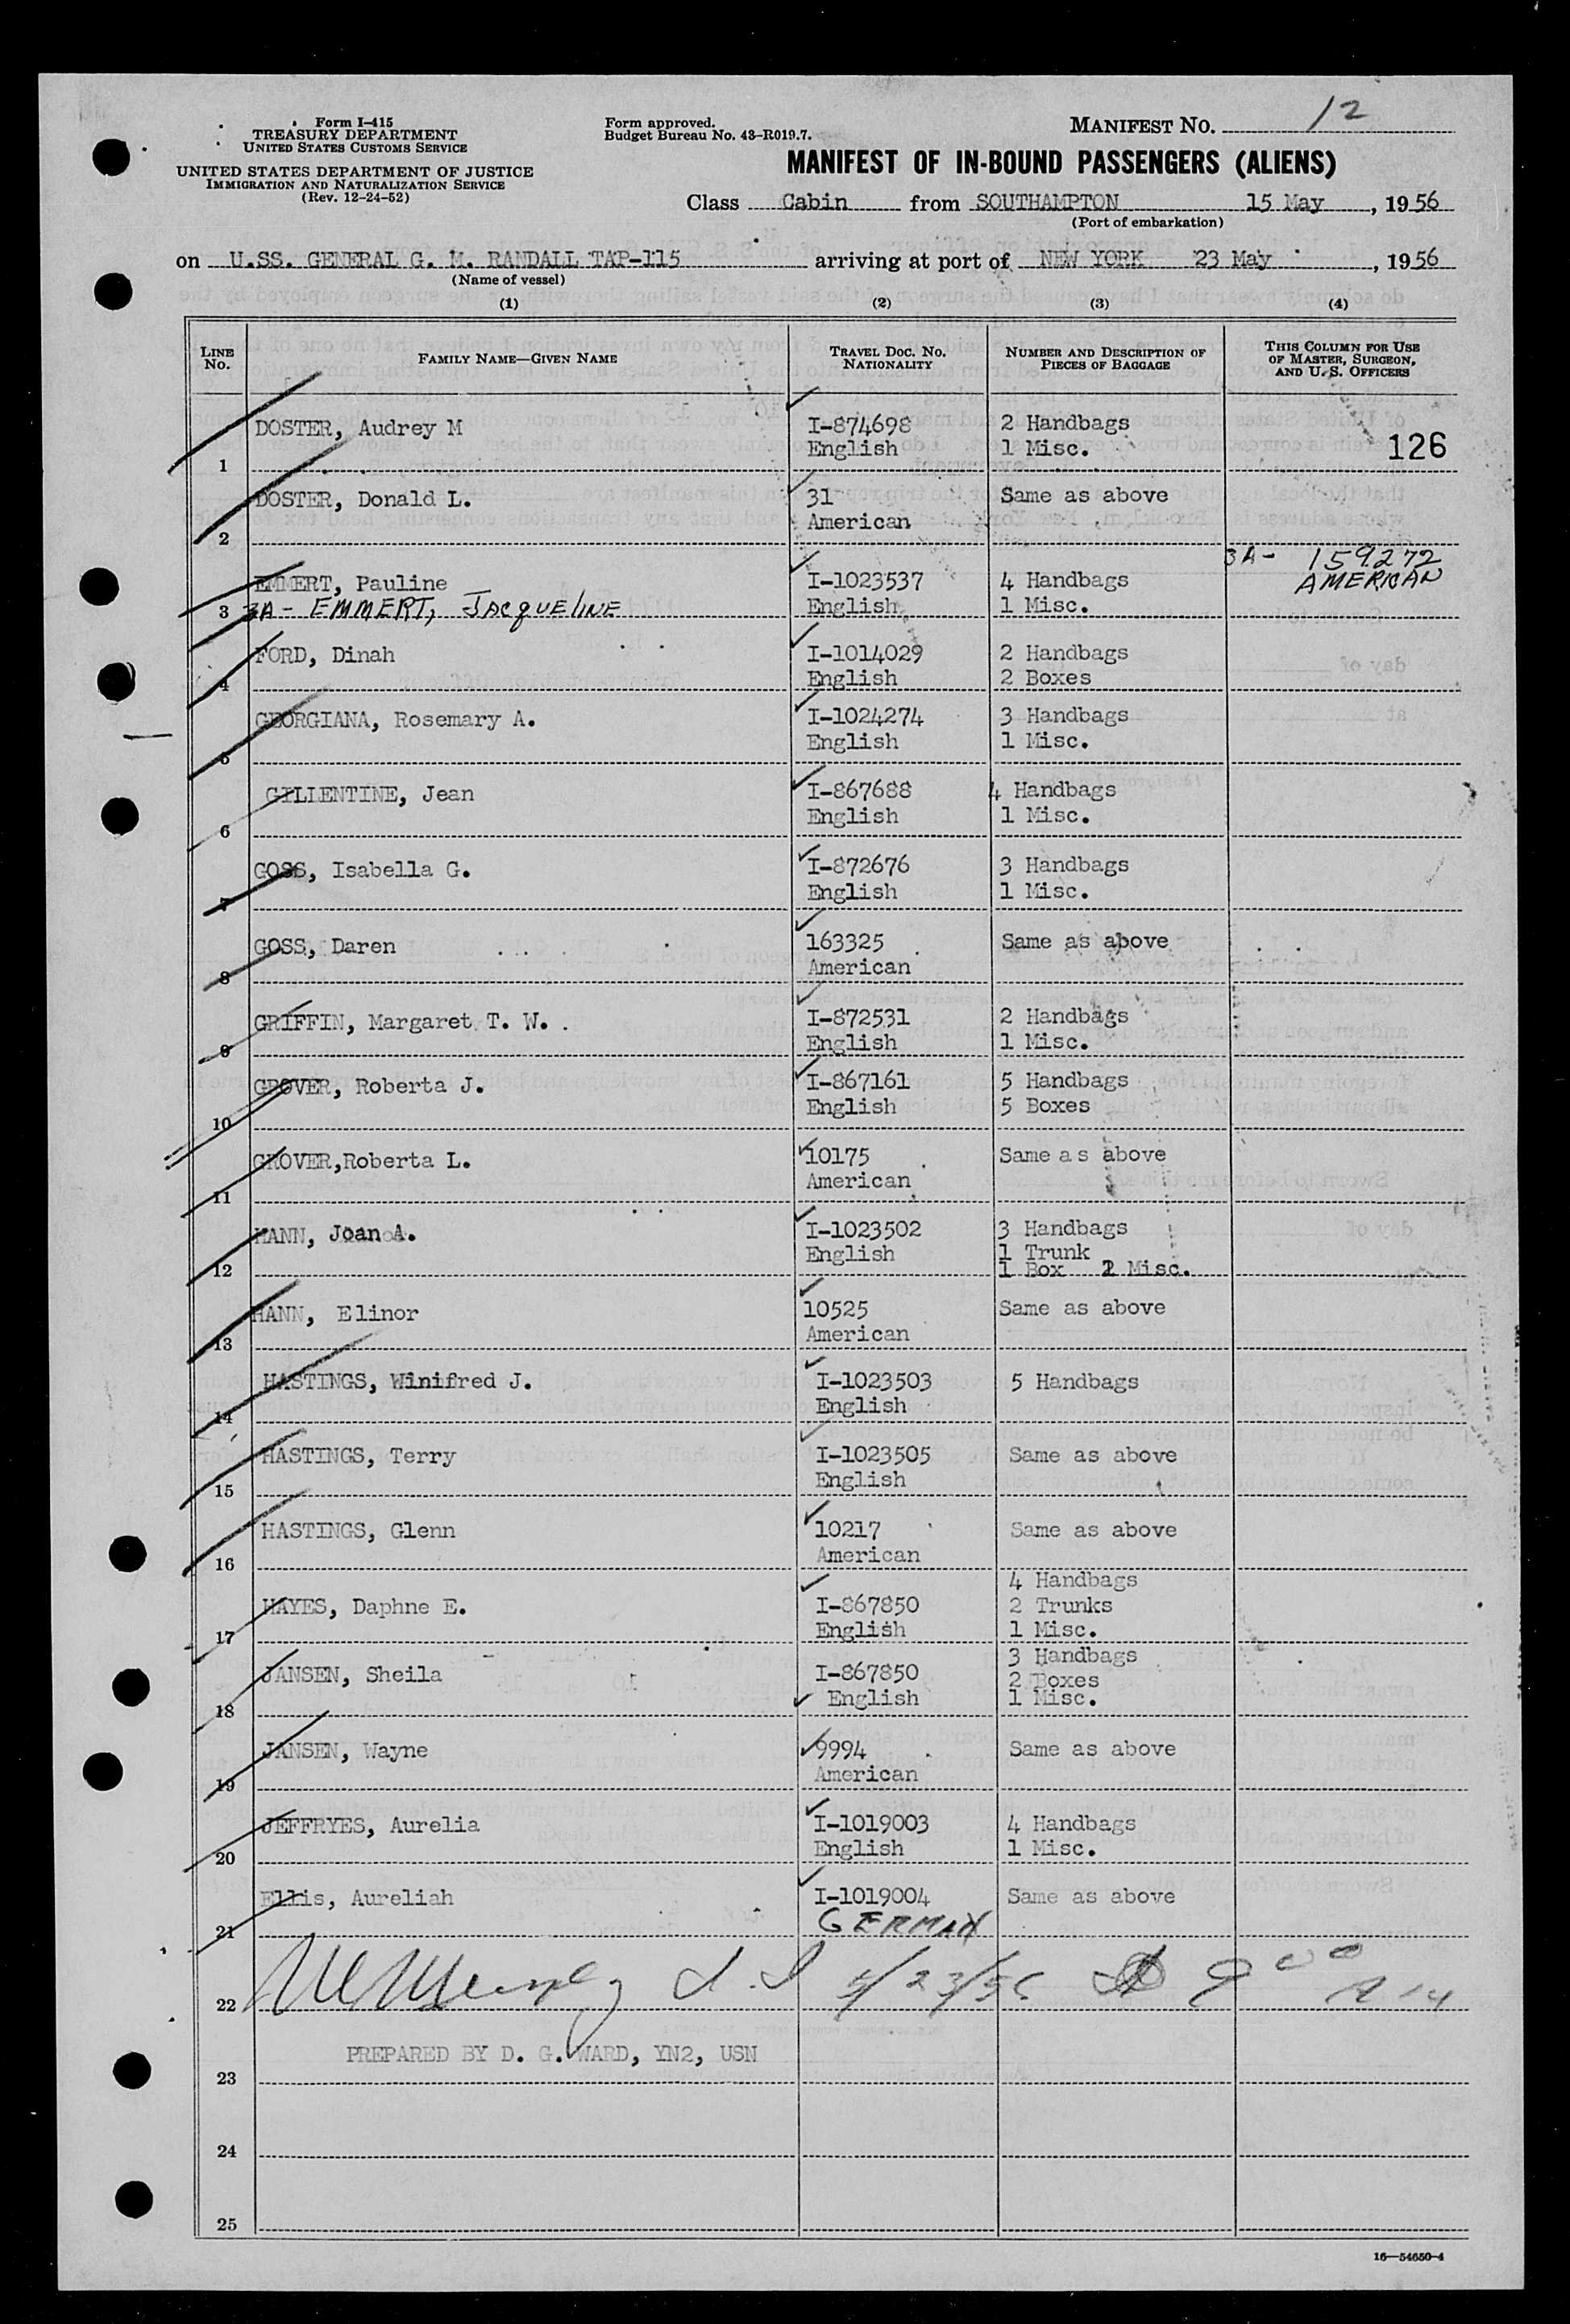 Form I-415
TREASURY DEPARTMENT
UNITED STATES CUSTOMS SERVICE
UNITED STATES DEPARTMENT OF JUSTICE
IMMIGRATION AND NATURALIZATION SERVICE
(Rev. 12-24-52)
Form approved.
Budget Bureau No. 43-R019.7.
MANIFEST NO. 12
MANIFEST OF IN-BOUND PASSENGERS (ALIENS)
Class Cabin from SOUTHAMPTON 15 May, 1956
(Port of embarkation)
on U.SS. GENERAL G. M. RANDALL TAP-115 arriving at port of NEW YORK 23 May, 1956
(Name of vessel)
(1) (2) (3) (4)
LINE NO. FAMILY NAME—GIVEN NAME TRAVEL DOC. NO. NATIONALITY NUMBER AND DESCRIPTION OF PIECES OF BAGGAGE THIS COLUMN FOR USE OF MASTER, SURGEON, AND U.S. OFFICERS
DOSTER, Audrey M I-874698 2 Handbags
1 English 1 Misc. 126
DOSTER, Donald L. 31 Same as above
2 American
3A- 159272
EMMERT, Pauline I-1023537 4 Handbags AMERICAN
3 3A- EMMERT, JACQUELINE English 1 Misc.
FORD, Dinah I-1014029 2 Handbags
4 English 2 Boxes
GEORGIANA, Rosemary A. I-1024274 3 Handbags
5 English 1 Misc.
GILLENTINE, Jean I-867688 4 Handbags
6 English 1 Misc.
GOSS, Isabella G. I-872676 3 Handbags
7 English 1 Misc.
GOSS, Daren 163325 Same as above
8 American
GRIFFIN, Margaret T. W. I-872531 2 Handbags
9 English 1 Misc.
GROVER, Roberta J. I-867161 5 Handbags
10 English 5 Boxes
GROVER,Roberta L. 10175 Same as above
11 American
HANN, Joan A. I-1023502 3 Handbags
English 1 Trunk
12 1 Box 2 Misc.
HANN, Elinor 10525 Same as above
13 American
HASTINGS, Winifred J. I-1023503 5 Handbags
14 English
HASTINGS, Terry I-1023505 Same as above
15 English
HASTINGS, Glenn 10217 Same as above
16 American
4 Handbags
HAYES, Daphne E. I-867850 2 Trunks
17 English 1 Misc.
3 Handbags
JANSEN, Sheila I-867850 2 Boxes
18 English 1 Misc.
JANSEN, Wayne 9994 Same as above
19 American
JEFFRYES, Aurelia I-1019003 4 Handbags
20 English 1 Misc.
Ellis, Aureliah I-1019004 Same as above
21 GERMAN
22 5/23/56
PREPARED BY D. G. WARD, YN2, USN
23
24
25
16—54650-4